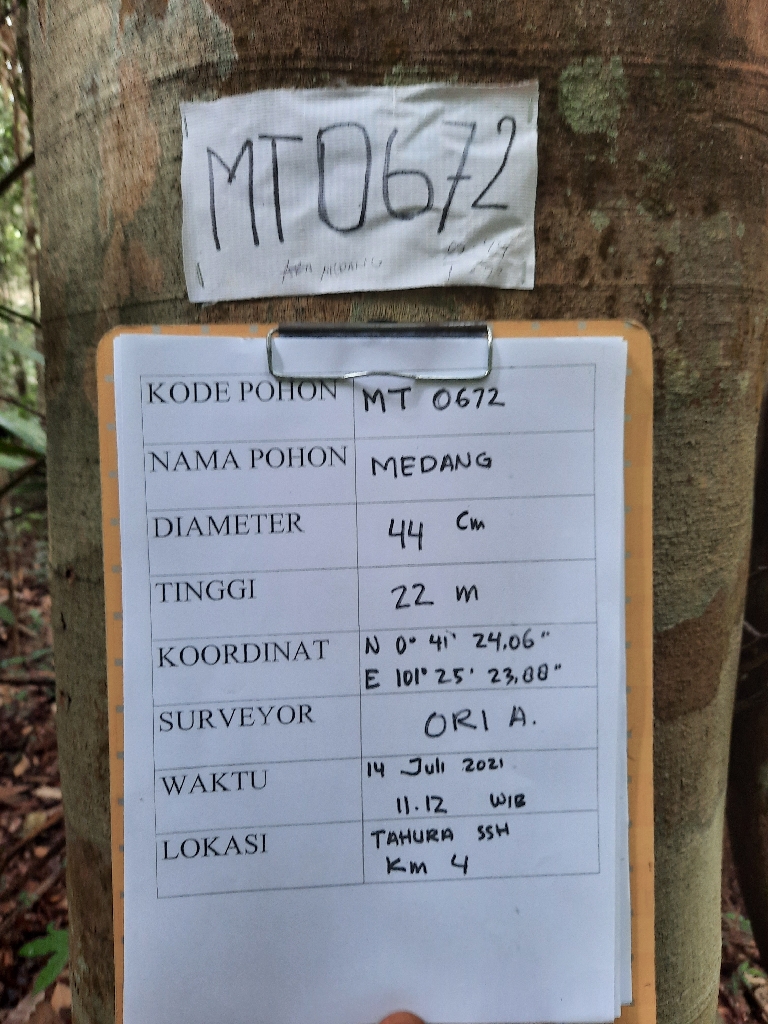 MT0672
MEDANG
KODE POHON MT 0672
NAMA POHON MEDANG
DIAMETER 44 cm
TINGGI 22 m
KOORDINAT N 0° 41' 24,06"
E 101° 25' 23,88"
SURVEYOR ORI A.
WAKTU 14 Juli 2021
11.12 WIB
LOKASI TAHURA SSH
Km 4